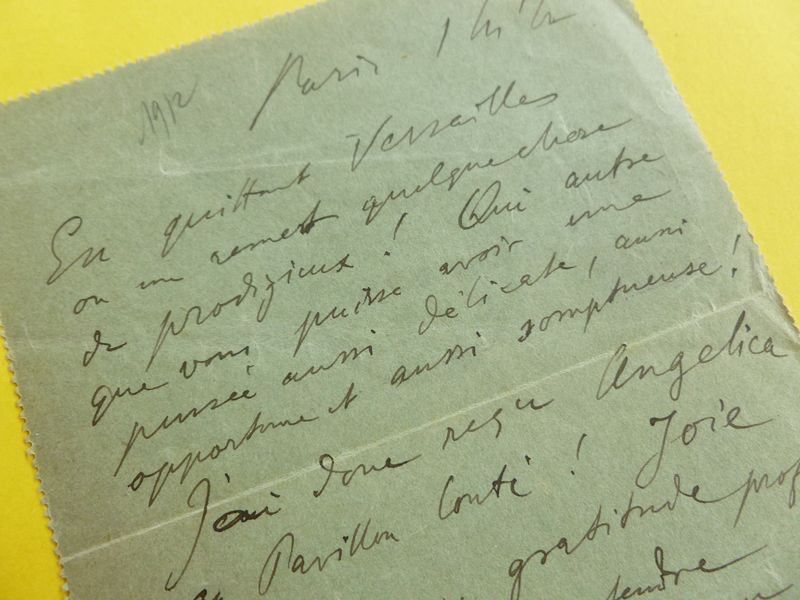 1912 Paris
En quittant Versailles
on me remet quelque chose
de prodigieux! Qui autre
que vous puisse avoir une
pensée aussi délicate, aussi
opportune et aussi somptueuse!
J'ai donc reçu Angelica
au Pavillon Conti! Joie
gratitude prof
tendre